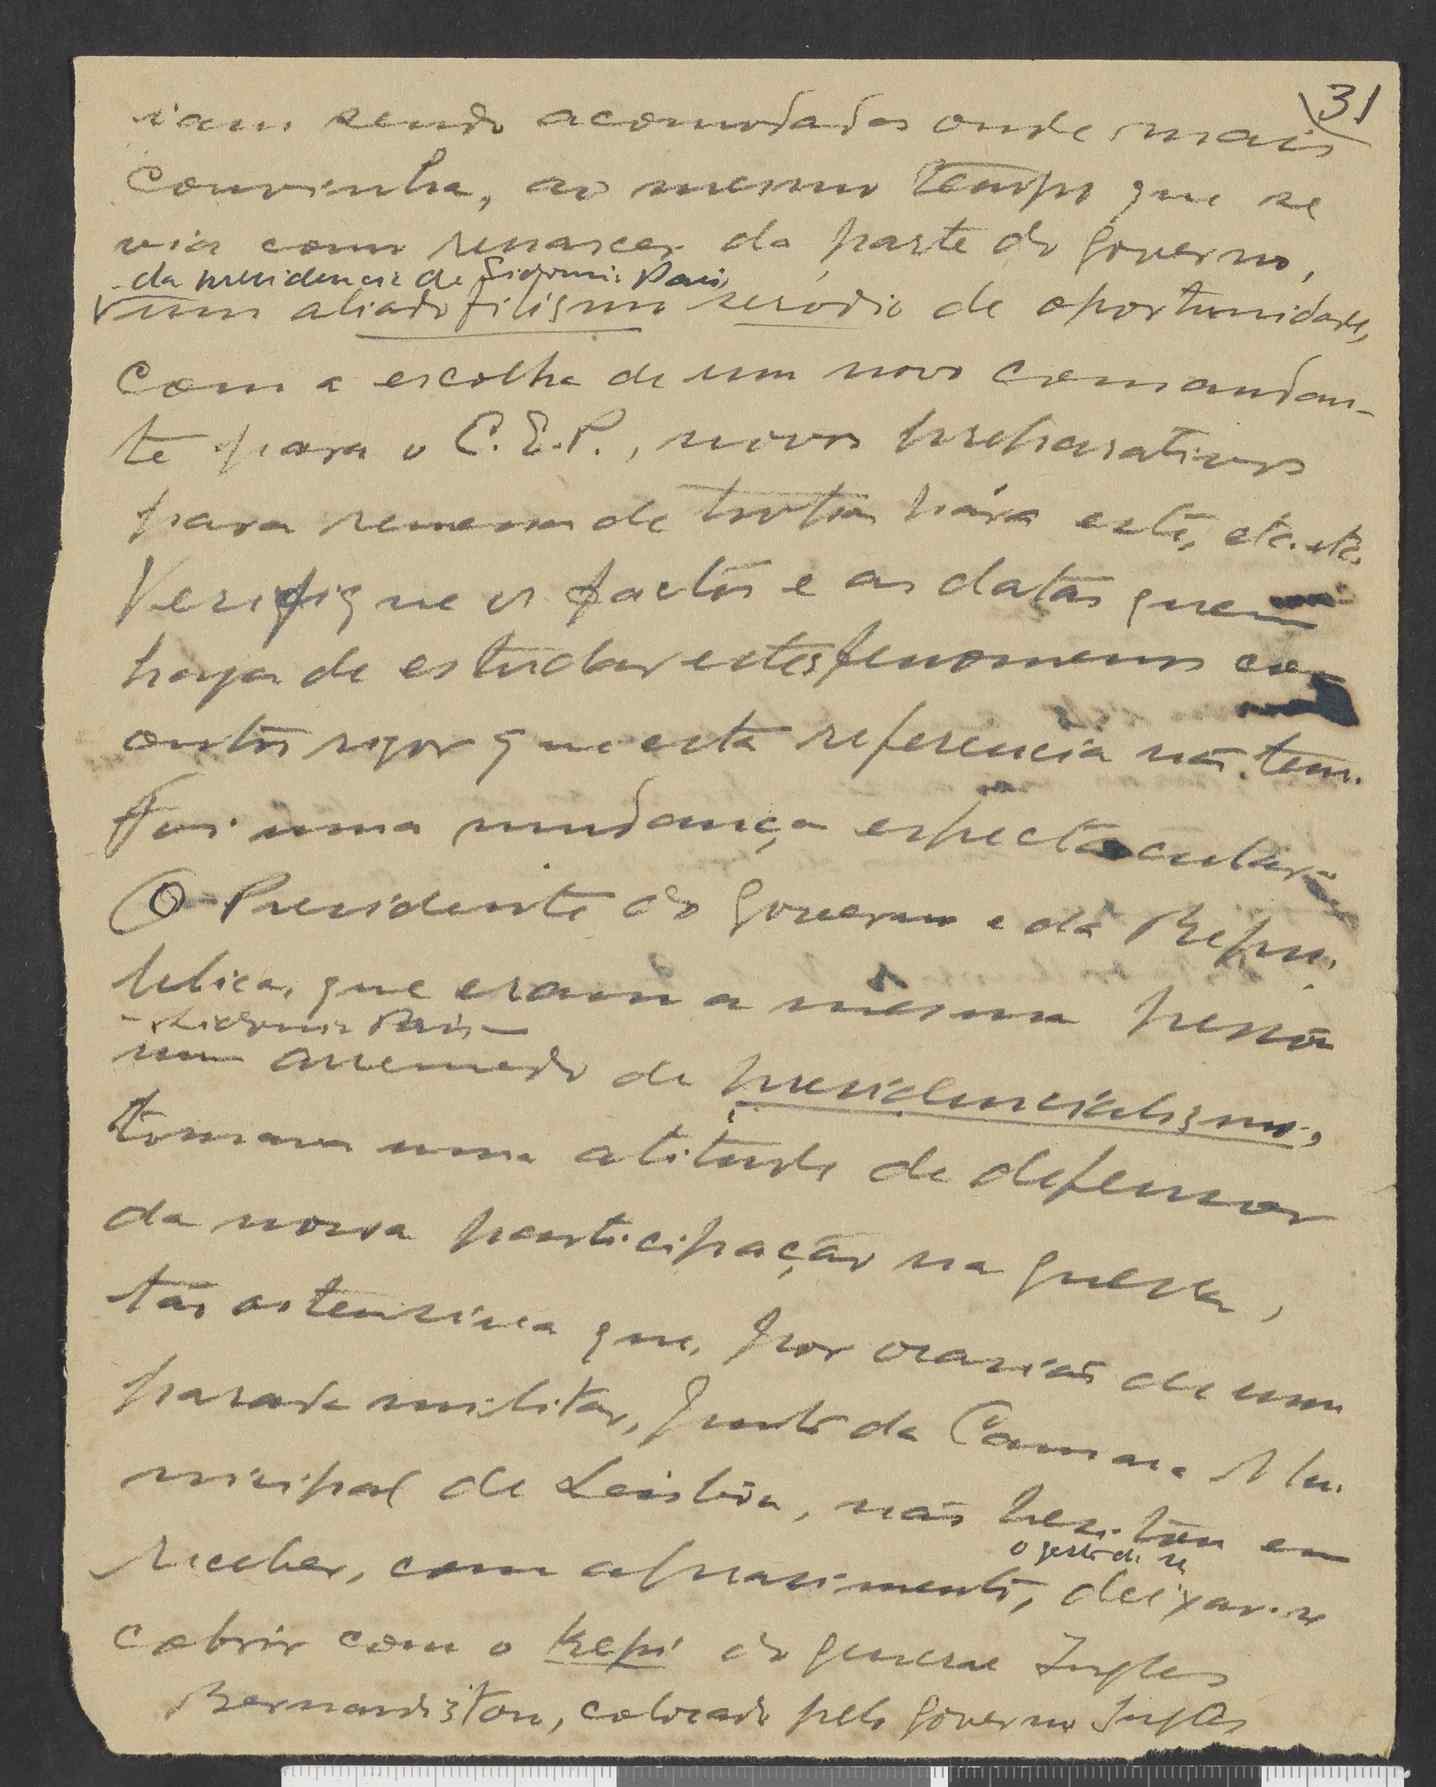 31
iam sendo acomodados onde mais
convinha, ao mesmo tempo que se
via como renascer da parte do Governo,
- da presidencia de Sidonio Pais,
um aliadofilismo serodio de oportunidade,
com a escolha de um novo comandan-
te para o C.E.P., novos preparativos
para remessa de tropas pára este, etc. etc.
Verifique os factos e as datas quem
haja de estudar estes fenomenos com
outro rigor que esta referencia não tem.
Foi uma mudança espectacular
O Presidente do Governo e da Repu-
blica, que eram a mesma pessoa
- Sidonio Pais -
num arremedo de presidencialismo,
tomava uma atitude de defensor
da nossa participação na guerra,
tão ostensiva que, por ocasião de uma
parada militar, junto da Camara Mu-
nicipal de Lisboa, não hesitou em
o gesto de se
receber, com aprasimento, deixar-se
cobrir com o kepi do general Ingles
Bernardiston, colocado pelo Governo Ingles